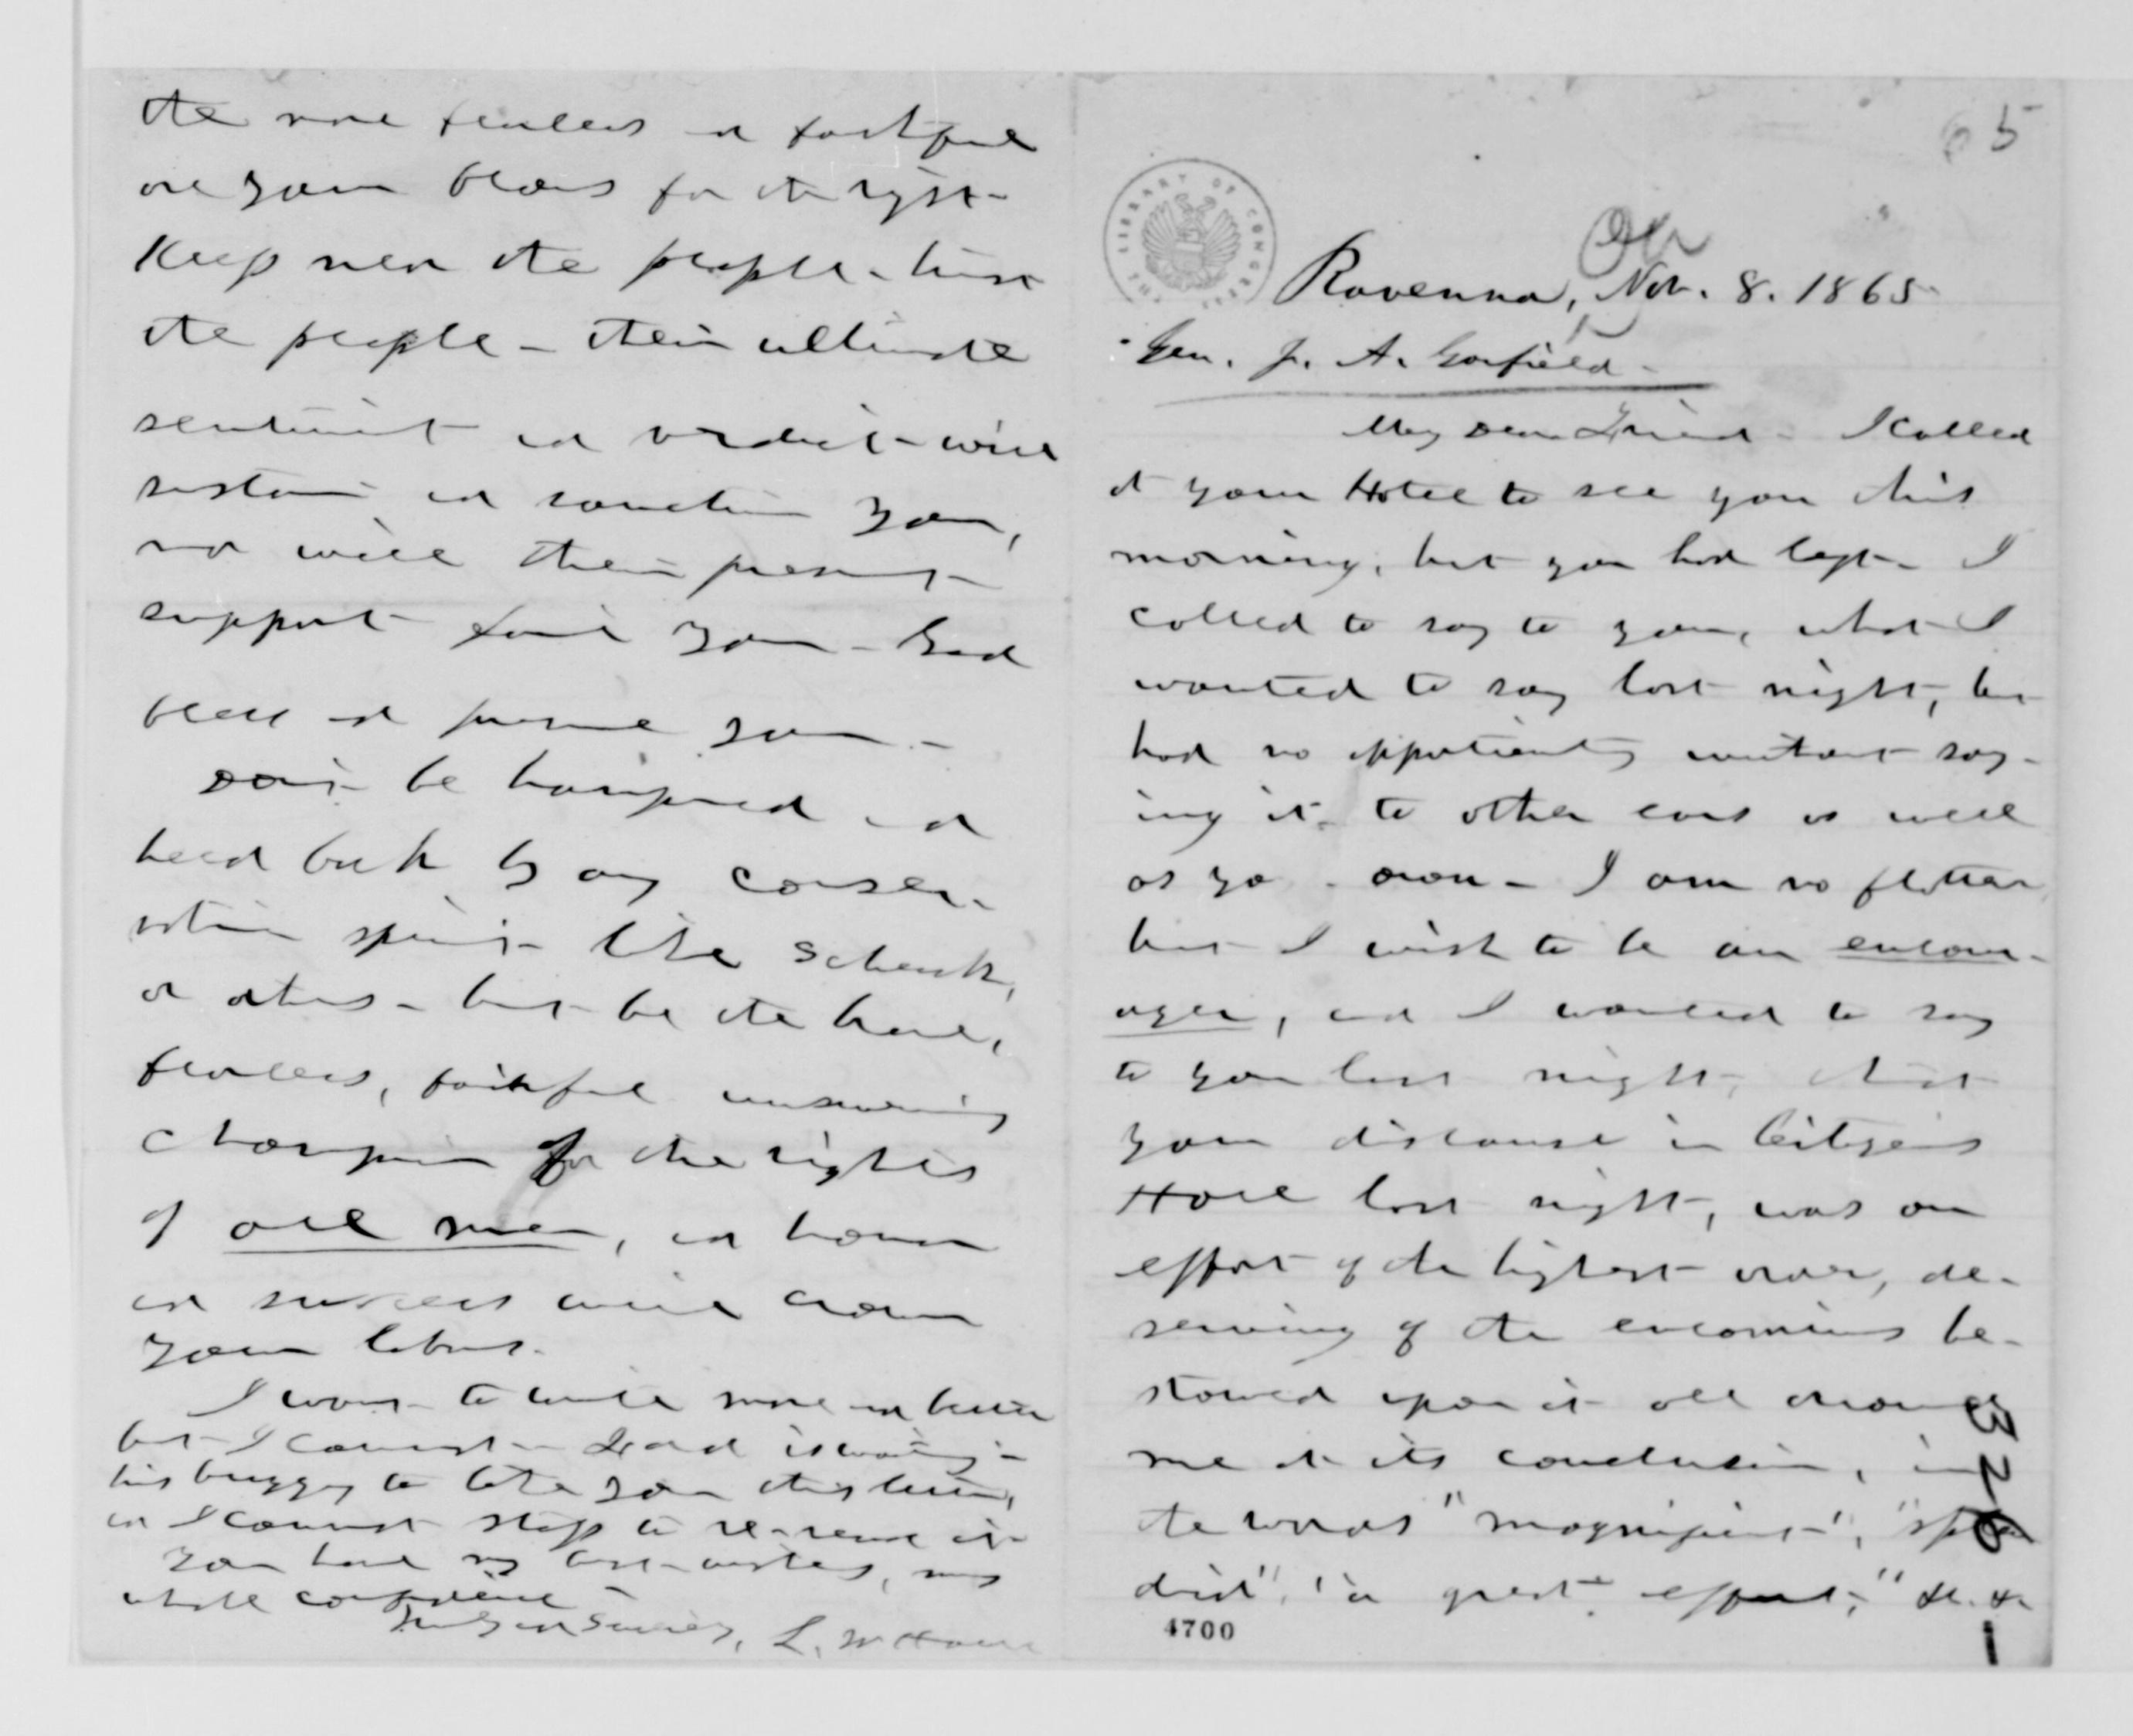 65
THE LIBRARY OF CONGRESS
Oh
Ravenna, Nov. 8. 1865
Gen. J. A. Garfield.
My Dear Friend - I called
at your Hotel to see you this
morning, but you had left - I
called to say to you, what I
wanted to say last night, but
had no opportunity without say-
ing it to other ears as well
as your own - I am no flatterer
but I wish to be an encour-
ager, and I wanted to say
to you last night, that
your discourse in Citizens
Hall last night, was an
effort of the highest order, de-
serving of the encomiums be-
stowed upon it all around
me at its conclusion, in
the words "magnificent", "splen
did", "a great effort," &c. &c
4700
the more fearless and faithful
are your blows for the right -
Keep near the people - trust
the people - their ultimate
sentiment and verdict will
sustain and sanction you,
nor will their present
support fail you - God
bless and you -
Don't be hampered and
held back by any conser-
vative spirit like Schenck,
or others - but be the brave,
fearless, faithful unswerving
champion for the rights
of all men, and honor
and success will crown
your labors.
I want to write more and better
but I cannot - is waiting -
his buggy to take you this letter,
and I cannot stop to re-read it
You have my best wishes, my
whole confidence -
Truly and Sincerely, L. W. Hall